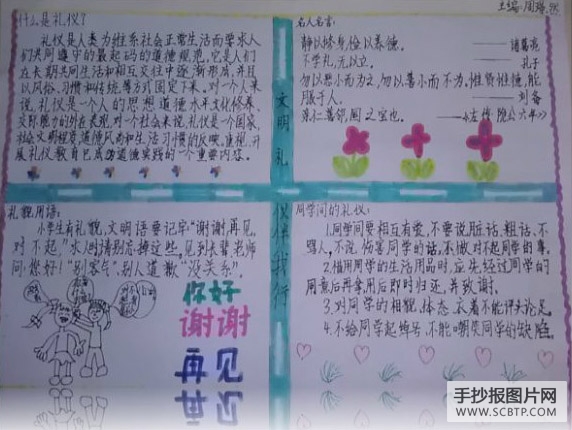 主编:周
什么是礼仪?
礼仪是人类为维系社会正常生活而要求人
们共同遵守的最起码的道德规范,它是人们
在长期共同生活和相互交往中逐渐形成,并且
以风俗、习惯和传统等方式固定下来。对一个人来
说,礼仪是一个人的思想道德水平,文化修养、
交际能力的外在表现,对一个社会来说,礼仪是一个国家、
社会文明程度、道德风尚和生活习惯的反映。重视、开
展礼仪教育已成为道德实践的一个重要内容。
名人名言:
静以修身,俭以养德。——诸葛亮
不学礼,无以立。——孔子
勿以恶小而为之,勿以善小而不为,惟贤惟德,能
服于人。——刘备
亲仁善邻,国之宝也。——《左传·隐公六年》
文明礼
仪伴我行
礼貌用语:
小学生有礼貌,文明语要记牢"谢谢,再见,
对不起,"求人时请别忘掉这些,见到长辈老师
问"您好!""别客气",别人道歉"没关系"。
你好
谢谢
再见
同学间的礼仪:
1.同学间要相互有爱,不要说脏话、粗话、不
骂人,不说伤害同学的话,不做对不起同学的事。
2.借用同学的生活用品时,应先经过同学的
同意后再拿用后即时归还,并致谢。
3.对同学的相貌、体态、衣着不能评头论足。
4.不给同学起绰号,不能嘲笑同学的缺陷。
手抄报图片网
WWW.SCBTP.COM